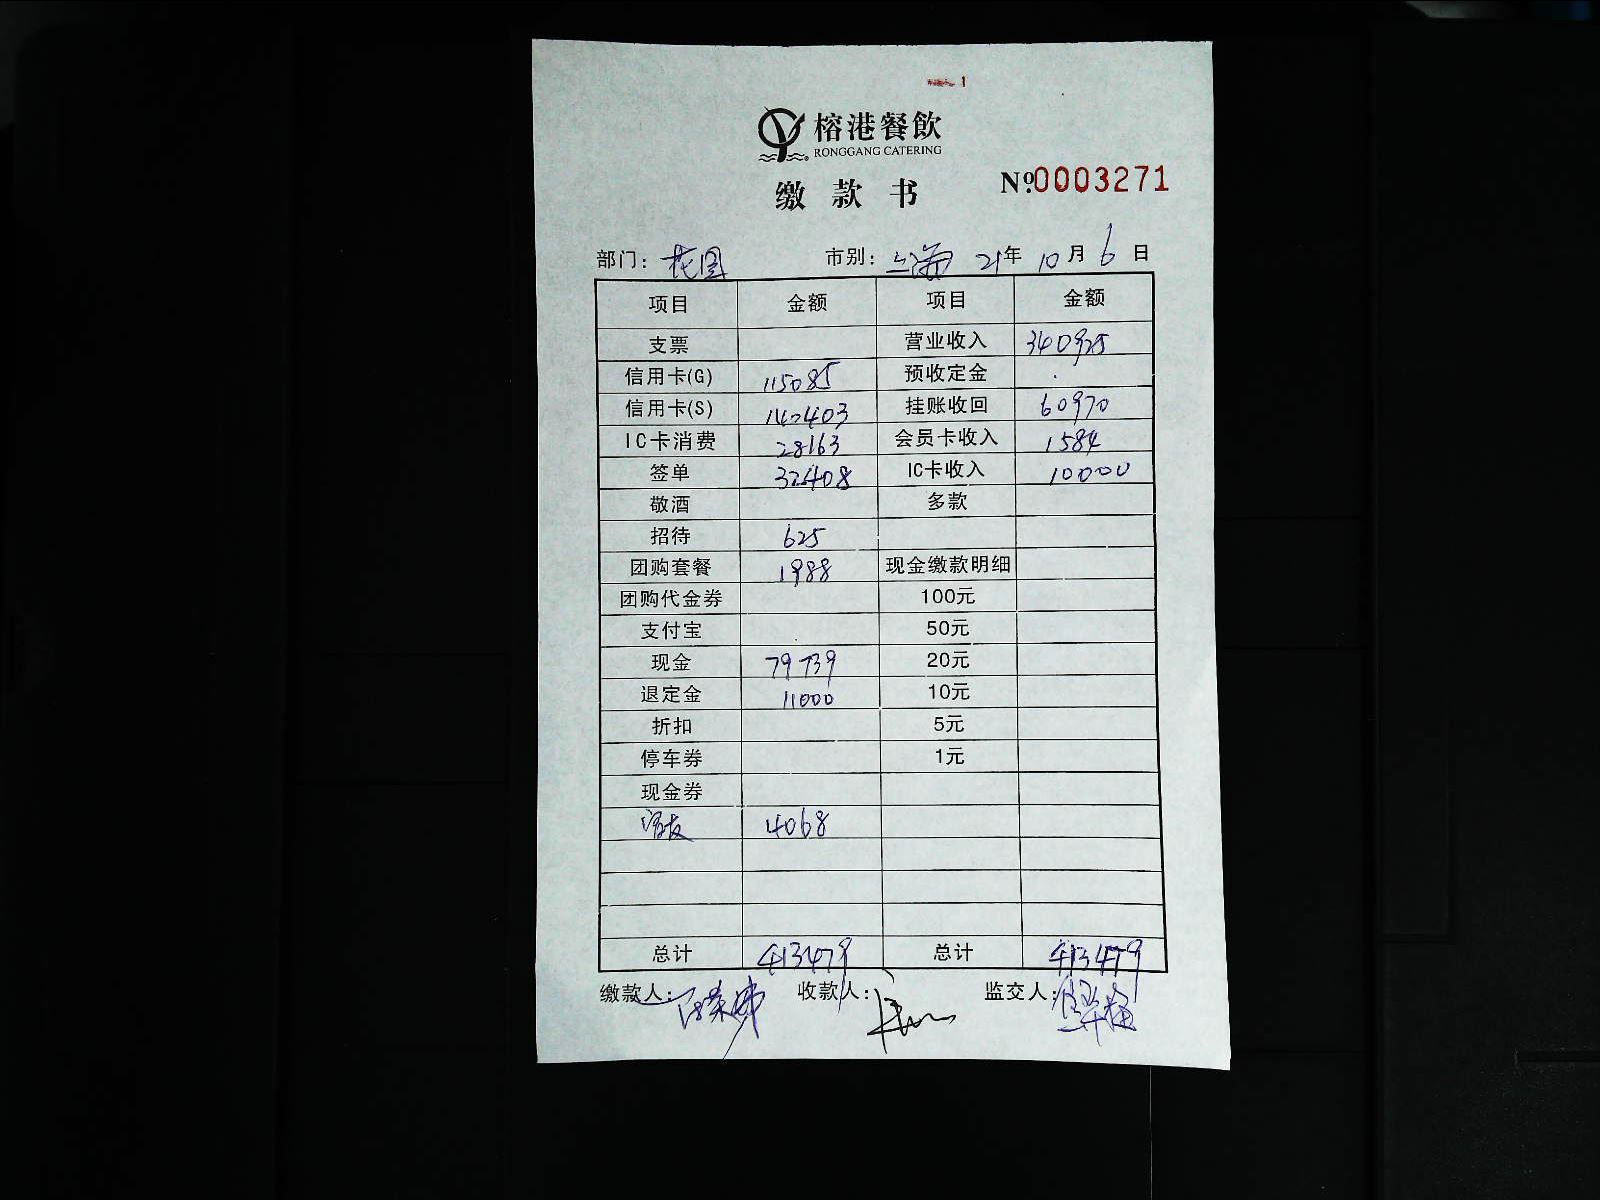 榕港餐飲
RONGGANG CATERING
缴款书 №0003271
部门: 花园 市别: 上海 21年 10月 6日
项目 金额 项目 金额
支票 营业收入 340925
信用卡(G) 115085 预收定金
信用卡(S) 140403 挂账收回 60970
IC卡消费 28163 会员卡收入 1584
签单 32408 IC卡收入 10000
敬酒 多款
招待 625
团购套餐 1988 现金缴款明细
团购代金券 100元
支付宝 50元
现金 79739 20元
退定金 11000 10元
折扣 5元
停车券 1元
现金券
4068
总计 413479 总计 413479
缴款人: 收款人: 监交人: